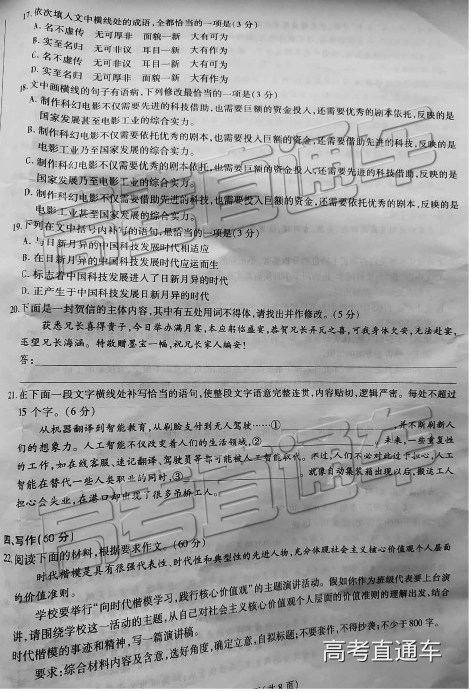 17.依次填入文中横线处的成语,全都恰当的一项是(3分)
A. 名不虚传 无可厚非 面貌一新 大有可为
B. 实至名归 无可非议 耳目一新 大有作为
C. 名不虚传 无可非议 耳目一新 大有可为
D. 实至名归 无可厚非 面貌一新 大有作为
18.文中画横线的句子有语病,下列修改最恰当的一项是(3分)
A. 制作科幻电影不仅需要先进的科技借助,也需要巨额的资金投入,还需要优秀的剧本依托,反映的是
国家发展甚至电影工业的综合实力。
B. 制作科幻电影不仅需要依托优秀的剧本,也需要投入巨额的资金,还需要借助先进的科技,反映的是
电影工业乃至国家发展的综合实力。
C. 制作科幻电影不仅需要优秀的剧本依托,也需要巨额的资金投入,还需要先进的科技借助,反映的是
国家发展乃至电影工业的综合实力。
D. 制作科幻电影不仅需要借助先进的科技,也需要投入巨额的资金,还需要依托优秀的剧本,反映的是
电影工业甚至国家发展的综合实力。
19.下列在文中括号内补写的语句,最恰当的一项是(3分)
A. 与日新月异的中国科技发展时代相适应
B. 在日新月异的中国科技发展时代应运而生
C. 标志着中国科技发展进入了日新月异的时代
D. 正产生于中国科技发展日新月异的时代
20.下面是一封贺信的主体内容,其中有五处用词不得体,请找出并作修改。(5分)
获悉兄长喜得贵子,今日举办满月宴,本应躬临盛宴,恭贺兄长弄瓦之喜,可我身体欠安,无法赴宴,
还望兄长海涵。特敬赠墨宝一幅,祝兄长家人编安!
答:
21.在下面一段文字横线处补写恰当的语句,使整段文字语意完整连贯,内容贴切,逻辑严密。每处不超过
15个字。(6分)
从机器翻译到智能教育,从刷脸支付到无人驾驶……①,并不断刷新人
们的想象力。人工智能不仅改变着人们的生活领域,②。未来,一些重复性
的工作,如在线客服、速记翻译、驾驶员等都可能被人工智能取代。不过,人们不必对此过于担心,人工
智能在替代一些人类职业的同时,③。就像自动集装箱出现以后,搬运工人
担心会失业,在港口却出现了很多吊桥工人。
四、写作(60分)
22.阅读下面的材料,根据要求作文。(60分)
时代楷模是具有很强代表性、时代性和典型性的先进人物,充分体现社会主义核心价值观个人层面
的价值准则。
学校要举行“向时代楷模学习,践行核心价值观”的主题演讲活动。假如你作为班级代表要上台演
讲,请围绕学校这一活动的主题,从自己对社会主义核心价值观个人层面的价值准则的理解出发,结合
时代楷模的事迹和精神,写一篇演讲稿。
要求:综合材料内容及含意,选好角度,确定立意,自拟标题;不要套作,不得抄袭;不少于800字。
共8页)
高考直通车
高考直通车
高考直通车